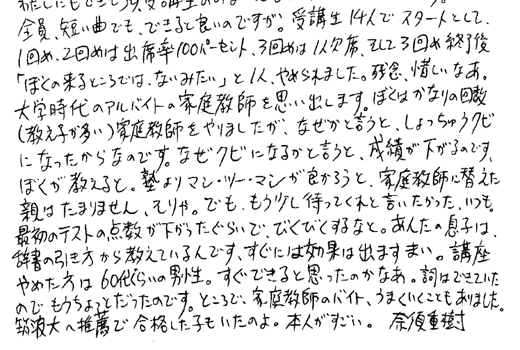 全員、短い曲でも、できると良いのですが。受講生14人でスタートして、
1回め、2回めは出席率100パーセント、3回めは1人欠席、そして3回め終了後
「ぼくの来るところでは、ないみたい」と1人、やめられました。残念、惜しいなあ。
大学時代のアルバイトの家庭教師を思い出します。ぼくはかなりの回数
(教え子が多い)家庭教師をやりましたが、なぜかと言うと、しょっちゅうクビ
になったからなのです。なぜクビになるかと言うと、成績が下がるのです、
ぼくが教えると。塾よりマン・ツー・マンが良かろうと、家庭教師に替えた
親はたまりません、そりゃ。でも、もう少し待ってくれと言いたかった、いつも。
最初のテストの点数が下がったぐらいで、びくびくするなと。あんたの息子は、
辞書の引き方から教えているんです、すぐには効果は出ますまい。講座
やめた方は60代ぐらいの男性。すぐできると思ったのかなあ。詞はできていた
のでもうちょっとだったのです。ところで、家庭教師のバイト、うまくいくこともありました。
筑波大へ推薦で合格した子もいたのよ。本人がすごい。 奈須重樹